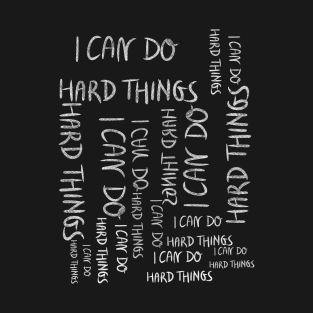 I CAN DO
HARD THINGS
I CAN DO
HARD THINGS
I CAN DO
HARD THINGS
I CAN DO
HARD THINGS
I CAN DO
HARD THINGS
I CAN DO
HARD THINGS
I CAN DO
HARD THINGS
I CAN DO
HARD THINGS
I CAN DO
HARD THINGS
I CAN DO
HARD THINGS
I CAN DO
HARD THINGS